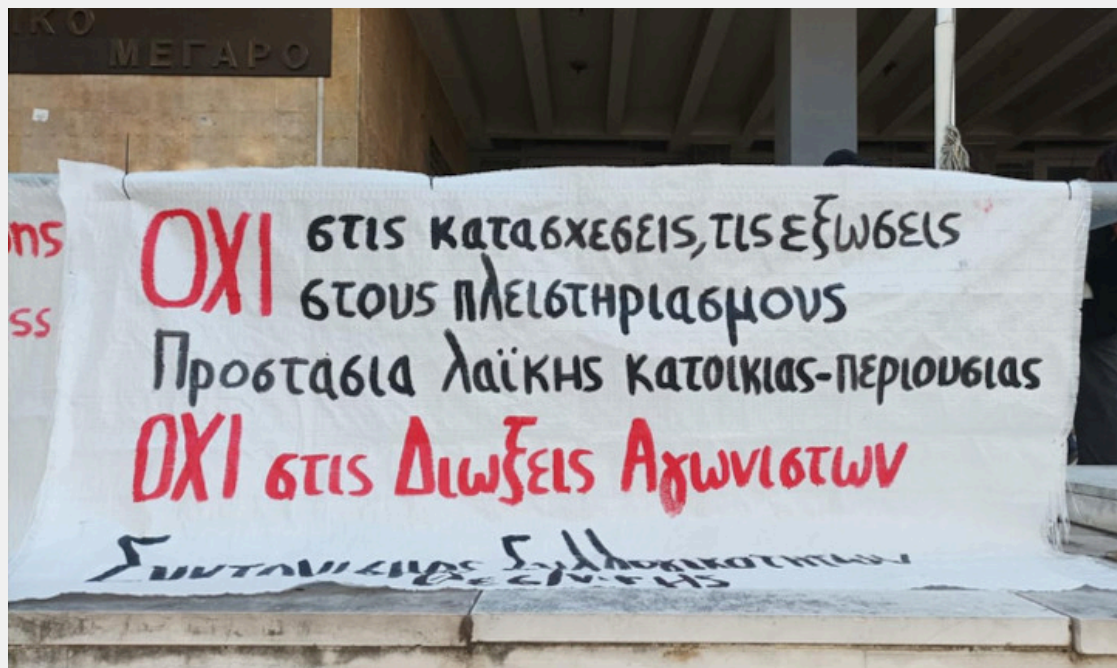 ΙΚΟ
ΜΕΓΑΡΟ
ΟΧΙ στις κατασχεσεις, τις εξωσεις
στους πλειστηριασμους
Προστασια λαϊκης κατοικιας-περιουσιας
ΟΧΙ στις Διωξεις Αγωνιστων
Συντονισμος Συλλογικοτητων
Θεσ/νικης
ης
ss